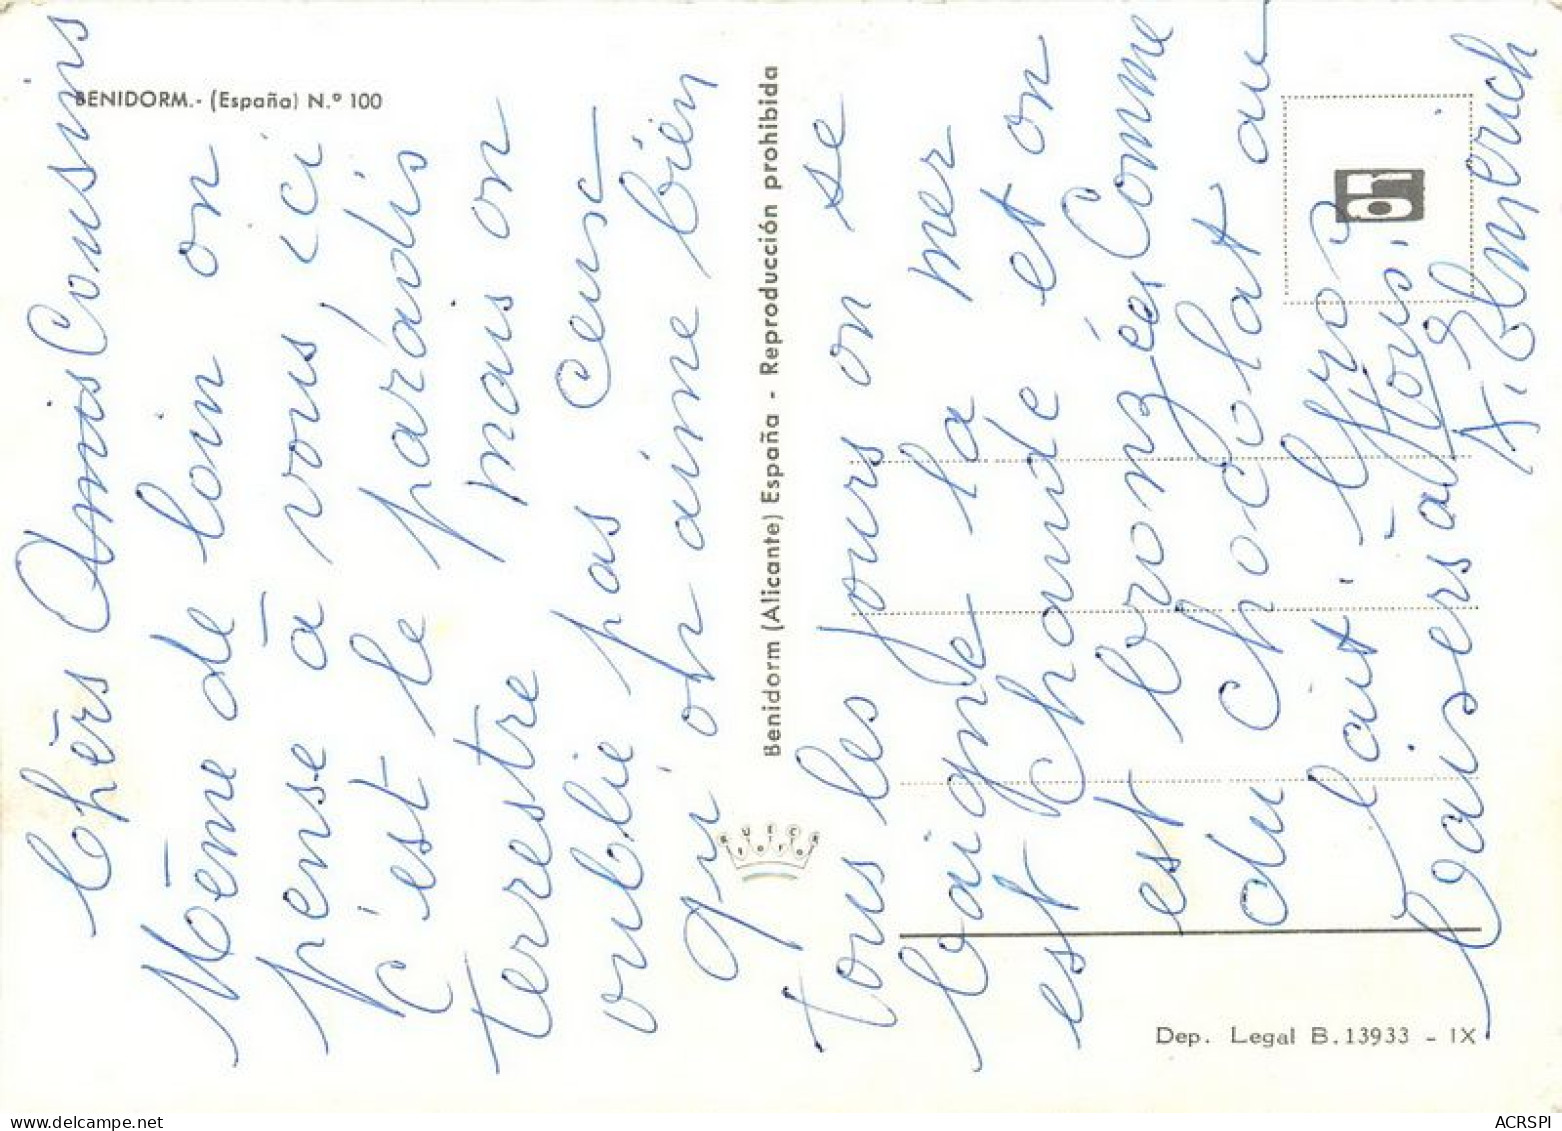 BENIDORM.- (España) N.º 100
Chèrs Amis Cousins
Même de loin on
pense à vous, ici
c'est le paradis
terrestre mais on
oublie pas ceux
qu'on aime bien
tous les jours on se
baigne la mer
est chaude et on
est bronzées Comme
du chocolat au
lait!
baisers à
A. Elmerich
Benidorm (Alicante) España - Reproducción prohibida
Dep. Legal B. 13933 - IX
ACRSPI